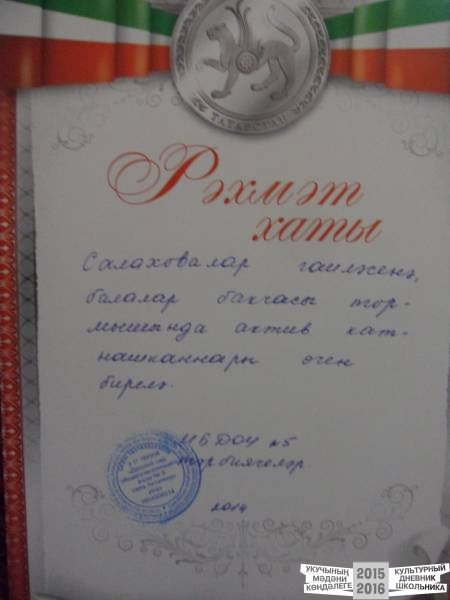 ТАТАРСТАН
Рәхмәт
хаты
Салаховалар гаиләсенә,
балалар бакчасы тор-
мышында актив кат-
нашканнары өчен
бирелә.
МБДОУ №5
тәрбиячеләр
2014
УКУЧЫНЫҢ
МӘДӘНИ
КӨНДӘЛЕГЕ
2015
2016
КУЛЬТУРНЫЙ
ДНЕВНИК
ШКОЛЬНИКА